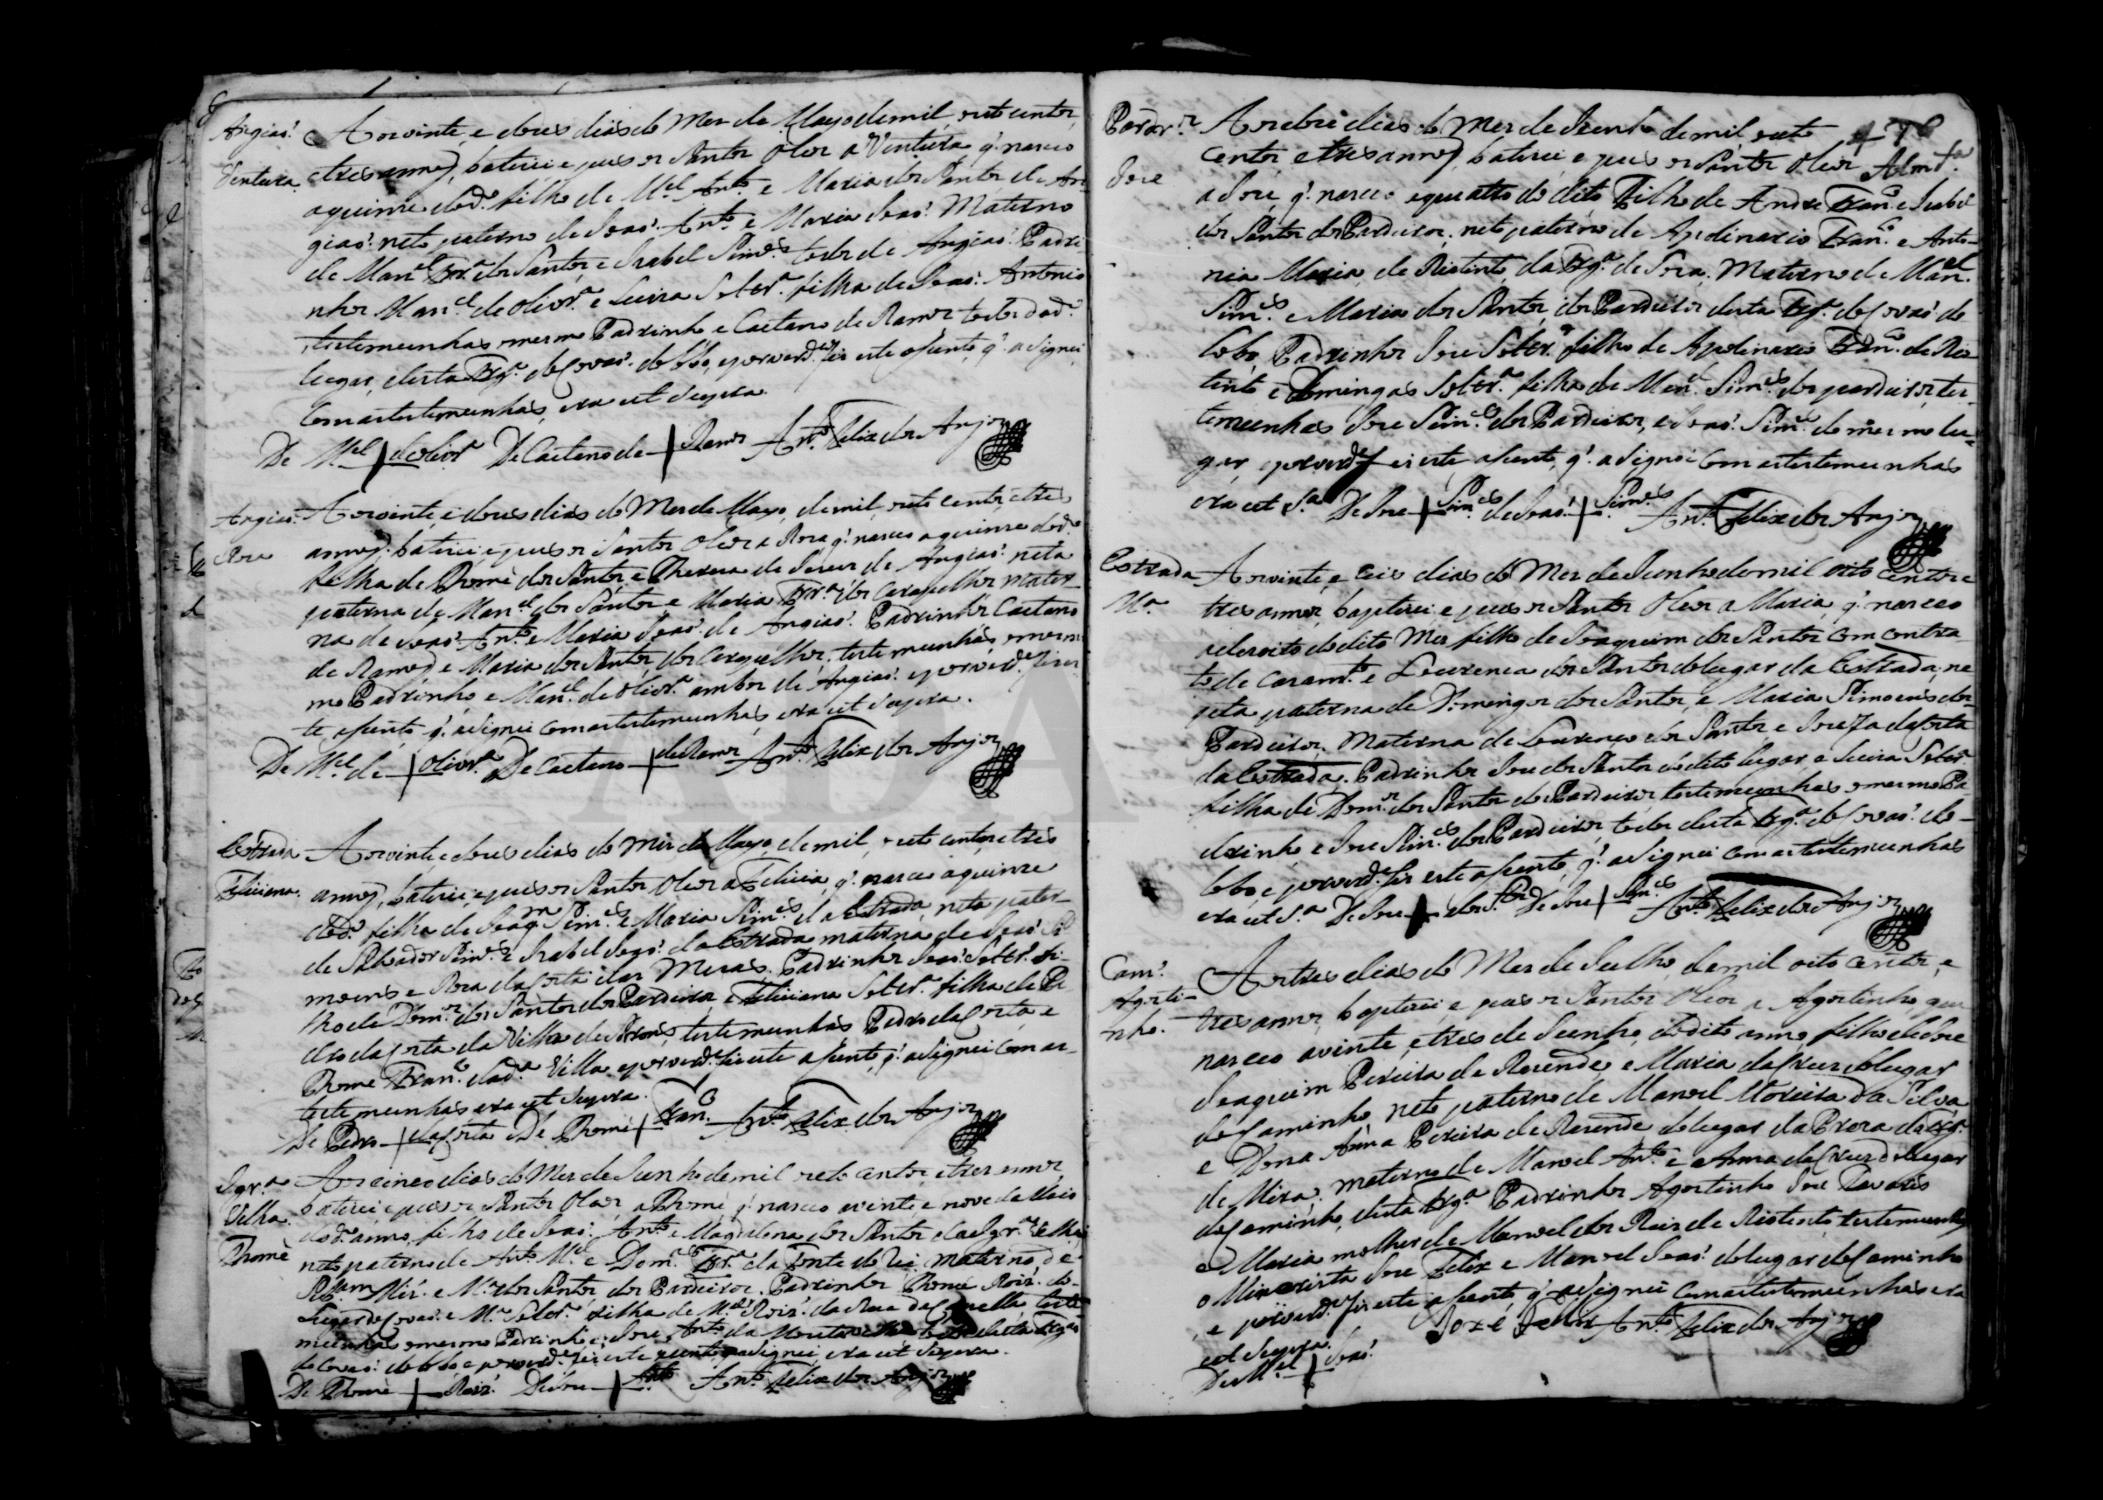 Angiaõ.
Ventura.
Aos vinte, e dous dias do Mes de Mayo de mil, outo centos,
e tres annos, baticei e pus os Santos Oleos a Ventura q. nasceo
a quinze do d.º filho de M.el Ant.º e Maria dos Santos de An
giaõ. neto paterno de Joaõ. Ant.º e Maria Joaõ. Materno
de Man.el Frr.ª dos Santos e Isabel Sim.es todos de Angiaõ. Padri
nhos Man.el de Oliv.rª e Luiza Solter.ª filha de Joaõ. Antonio
testemunhas o mesmo Padrinho e Caetano de Ramos todos do d.º
lugar, desta Frg.ª de Covaõ. do Lobo, e por verd.e fiz este asento, q. asignei
com as testemunhas, era ut supra.
De M.el de Oliv.rª De Caetano de Ramos Ant.º Felix dos Anjos
Angiaõ.
Rosa
Aos vinte, e dous dias do Mes de Mayo, de mil, outo centos, e tres
annos, baticei, e pus os Santos Oleos a Rosa q. nasceo a quinze do d.º
filha de Thomé dos Santos, e Thereza de Jesus de Angiaõ. neta
paterna de Man.el dos Santos e Maria Frr.ª dos Carapelhos mater
na de Joaõ. Ant.º e Maria Joaõ. de Angiaõ. Padrinhos Caetano
de Ramos, e Maria dos Santos, dos Carapelhos. testemunhas, o mes
mo Padrinho, e Man.el de Oliv.rª ambos de Angiaõ. e por verd.e fiz es
te asento, q. asignei com as testemunhas, era ut supra.
De M.el de Oliv.rª De Caetano de Ramos Ant.º Felix dos Anjos
Estrada
Feliciana.
Aos vinte, e dous dias do Mes de Mayo, de mil, outo centos, e tres
annos, baticei, e pus os Santos Oleos a Felicia, q. nasceo a quinze
do d.º filha de Joaq.m Sim.es e Maria Sim.es da Estrada, neta pater
de Salvador Sim.es e Isabel Joaõ. da Estrada materna de Joaõ Si
moens e Rosa da Costa das Mesas. Padrinhos Joaõ. Solter.º fi
lho de Dom.os dos Santos dos Pardeiros e Feliciana Solter.ª filha de Pe
dro da Costa da Villa de testemunhas Pedro da Costa, e
Thome Fran.co da d.ª Villa, e por verd.e fiz este asento, q. asignei com as
testemunhas era ut supra.
De Pedro da Costa De Thome Fran.co Ant.º Felix dos Anjos
Igr.ª
Velha.
Thomé
Aos cinco dias do Mes de Junho de mil outo centos, e tres annos,
baticei, e pus os Santos Oleos, a Thomé q. nasceo a vinte e nove de Maio
do d.º anno, filho de Joaõ. Ant.º e Magdalena dos Santos da Igr.ª Velha
neto paterno de Ant.º M.el e Dom.as Frr.ª da Fonte do materno de
e M.ª dos Santos dos Pardeiros. Padrinhos Thomé Roiz. do
Lugar de Covaõ. e M.ª Solter.ª filha de M.el Roiz. da Rua da Capella, teste
munhas o mesmo Padrinho, e Jose Ant.º da desta Frg.ª
de Covaõ. do Lobo, e por verd.e fiz este asento, q. asignei, era ut supra.
De Thomé Roiz. De Jose Ant.º Ant.º Felix dos Anjos
Pardr.os
Jose
Aos doze dias do Mes de Junho de mil, outo
centos, e tres annos, baticei, e pus os Santos Oleos
a Jose q. nasceo a quatro do dito Filho de Andre Fran.co e Isabel
dos Santos dos Pardeiros, neto paterno de Apolinario Fran.co e Anto
nia Maria, de Riotinto da Frg.ª de Soza, Materno de Man.el
Sim.es e Maria dos Santos dos Pardeiros desta Frg.ª de Covaõ do
Lobo, Padrinhos Jose Solter.º filho de Apolinario Fran.co de Rio
tinto e Domingas Solter.ª filha de Man.el Sim.es dos pardeiros, tes
temunhas Jose Sim.es dos Pardeiros, e Joaõ. Sim.es do mesmo lu
gar, e por verd.e fiz este asento, q. asignei com as testemunhas
era ut s.ª De Jose Sim.es de Joaõ. Sim.es Ant.º Felix dos Anjos
Estrada
M.ª
Aos vinte, e seis dias do Mes de Junho de mil oito centos e
tres annos, baptizei e pus os Santos Oleos a Maria, q. nasceo
a dezoito do dito Mes filha de Joaquim dos Santos com contra
to de Casam.to e Lourença dos Santos do lugar da Estrada, ne
ta paterna de Domingos dos Santos, e Maria Simoens dos
Pardeiros. Materna de Lourenço dos Santos e Josefa da Costa
da Estrada. Padrinhos Jose dos Santos do dito lugar e Luiza Solter.ª
filha de Dom.os dos Santos dos Pardeiros testemunhas o mesmo Pa
drinho, e Jose Sim.es dos Pardeiros, todos desta Frg.ª de Covaõ. do
Lobo, e por verd.e fiz este asento, q. asignei com as testemunhas
era ut s.ª De Jose dos S.tos De Jose Sim.es Ant.º Felix dos Anjos
Cam.º
Agosti
nho.
Aos tres dias do Mes de Julho, de mil oito centos, e
tres annos, baptizei e pus os Santos Oleos, a Agostinho que
nasceo a vinte, e tres de Junho, do dito anno, filho de Jose
Joaquim Pereira de Resende, e Maria da Cruz do lugar
do Caminho, neto paterno de Manoel Moreira da Silva
e Dona Anna Pereira de Resende do lugar da Prosa da Frg.ª
de Mira, materno de Manoel Ant.º e Anna da Cruz do lugar
do Caminho, desta Frg.ª Padrinhos Agostinho Jose Tavares
e Maria molher de Manoel dos Reis de Riotinto, testemunhas
o Minorista Jose Felix e Manoel Joaõ. do lugar do Caminho
e por verd.e fiz este asento q. asignei com as testemunhas era
ut supra. José Felix Ant.º Felix dos Anjos
De M.el Joaõ.
ADA